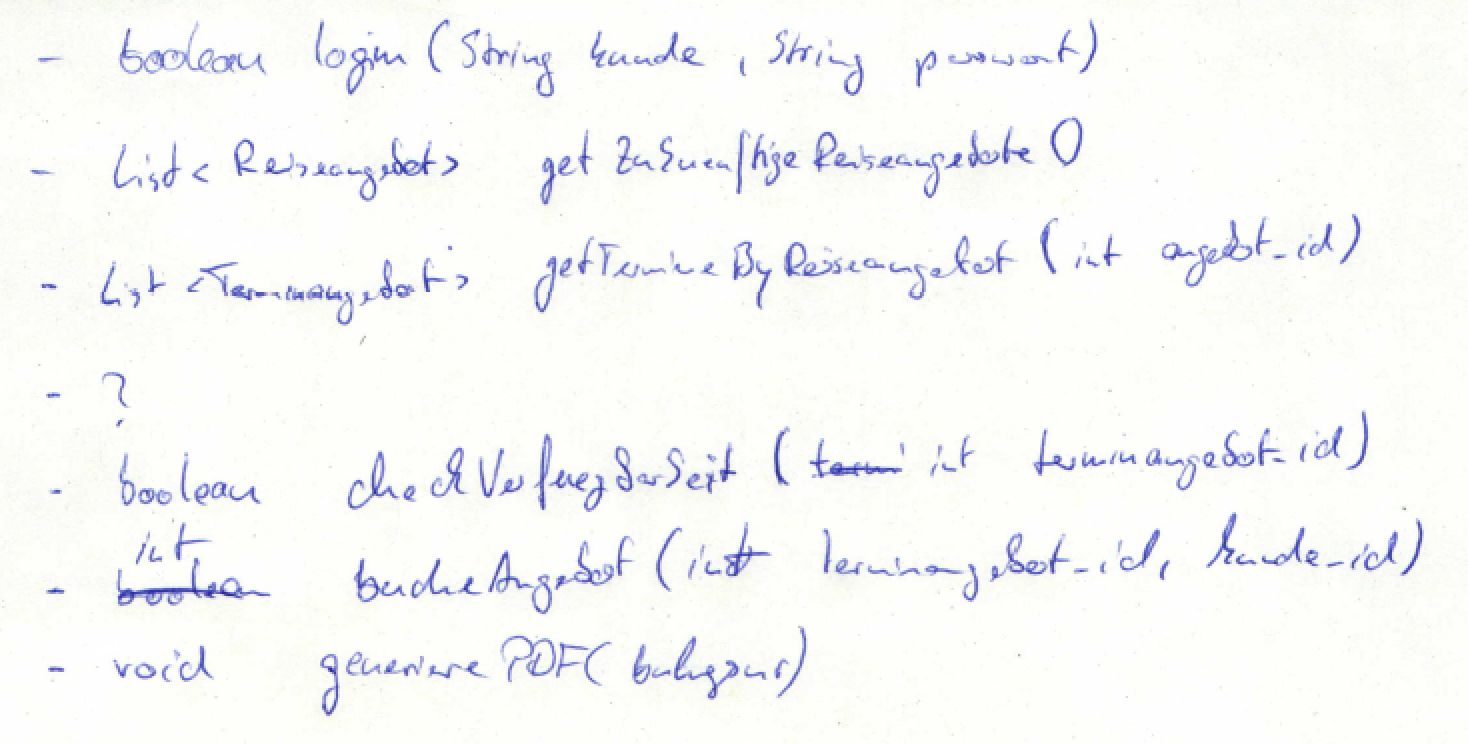 - boolean login (String kunde, String passwort)
- List< Reiseangebot> getZukuenftigeReiseangebote ()
- List <Terminangebot> getTermineByReiseangebot (int angebot_id)
- ?
- boolean checkVerfuegbarkeit ( int terminangebot_id)
int
- boolean bucheAngebot (int terminangebot_id, kunde_id)
- void generierePDF(